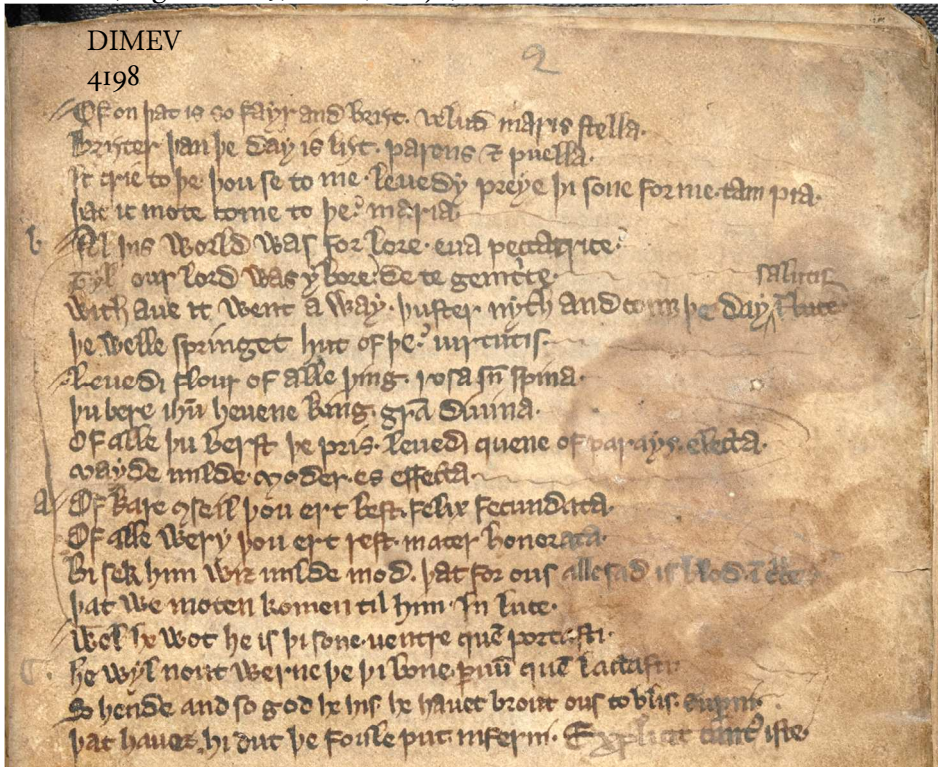 DIMEV
4198
2
Of on þat is so fayr and briȝt. velud maris stella.
Briȝter þan þe day is liȝt. parens ⁊ puella.
Ic crie to þe þou se to me. leuedy preye þi sone for me. tam pia.
þat ic mote come to þe. maria
b Al þis world was for lore. eua peccatrice.
Tyl our lord was ybore. de te genitrice. salutis
With aue it went a way. þuster nyth and comȝ þe day
þe welle springet hut of þe. uirtutis.
Leuedi flour of alle þing. rosa sñ spina.
þu bere ihū heuene king. gr̄a diuina.
Of alle þu berst þe pris. leuedi quene of parays. electa.
Mayde milde moder. es effecta.
a Of kare conseil þou ert best. felix fecundata.
Of alle wery þou ert rest. mater honorata.
Bi sek him wiz milde mod. þat for ous alle sad is blod. ī cͨce
þat we moten komen til him. In luce.
Wel he wot he is þi sone. uentre quē portasti.
he wyl nout werne þe þi bone. ꝑuū quē lactasti.
So hende and so god he his he hauet brout ous to blis. superni
þat hauet hi dut þe foule put inferni. Explicit cantꝰ iste